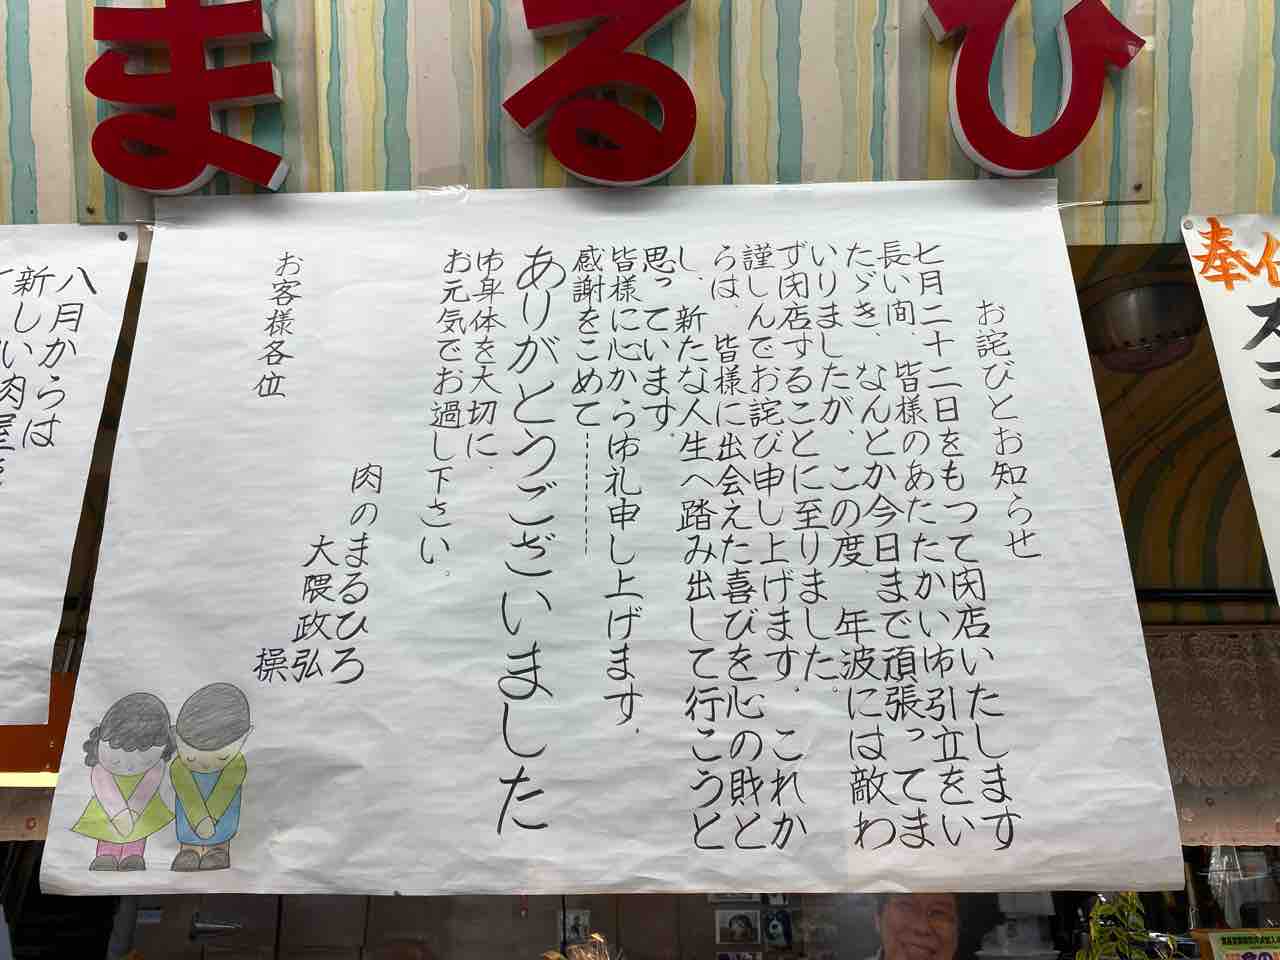 まるひ
お詫びとお知らせ
七月二十二日をもって閉店いたします
長い間、皆様のあたたかい御引立をい
たゞき、なんとか今日まで頑張ってま
いりましたが、この度、年波には敵わ
ず閉店することに至りました。
謹しんでお詫び申し上げます。これか
らは、皆様に出会えた喜びを心の財と
し、新たな人生へ踏み出して行こうと
思っています。
皆様に心から御礼申し上げます。
感謝をこめて
ありがとうございました
御身体を大切に、
お元気でお過し下さい。
肉のまるひろ
大隈政弘
操
お客様各位
八月からは
新しい肉屋
奉仕